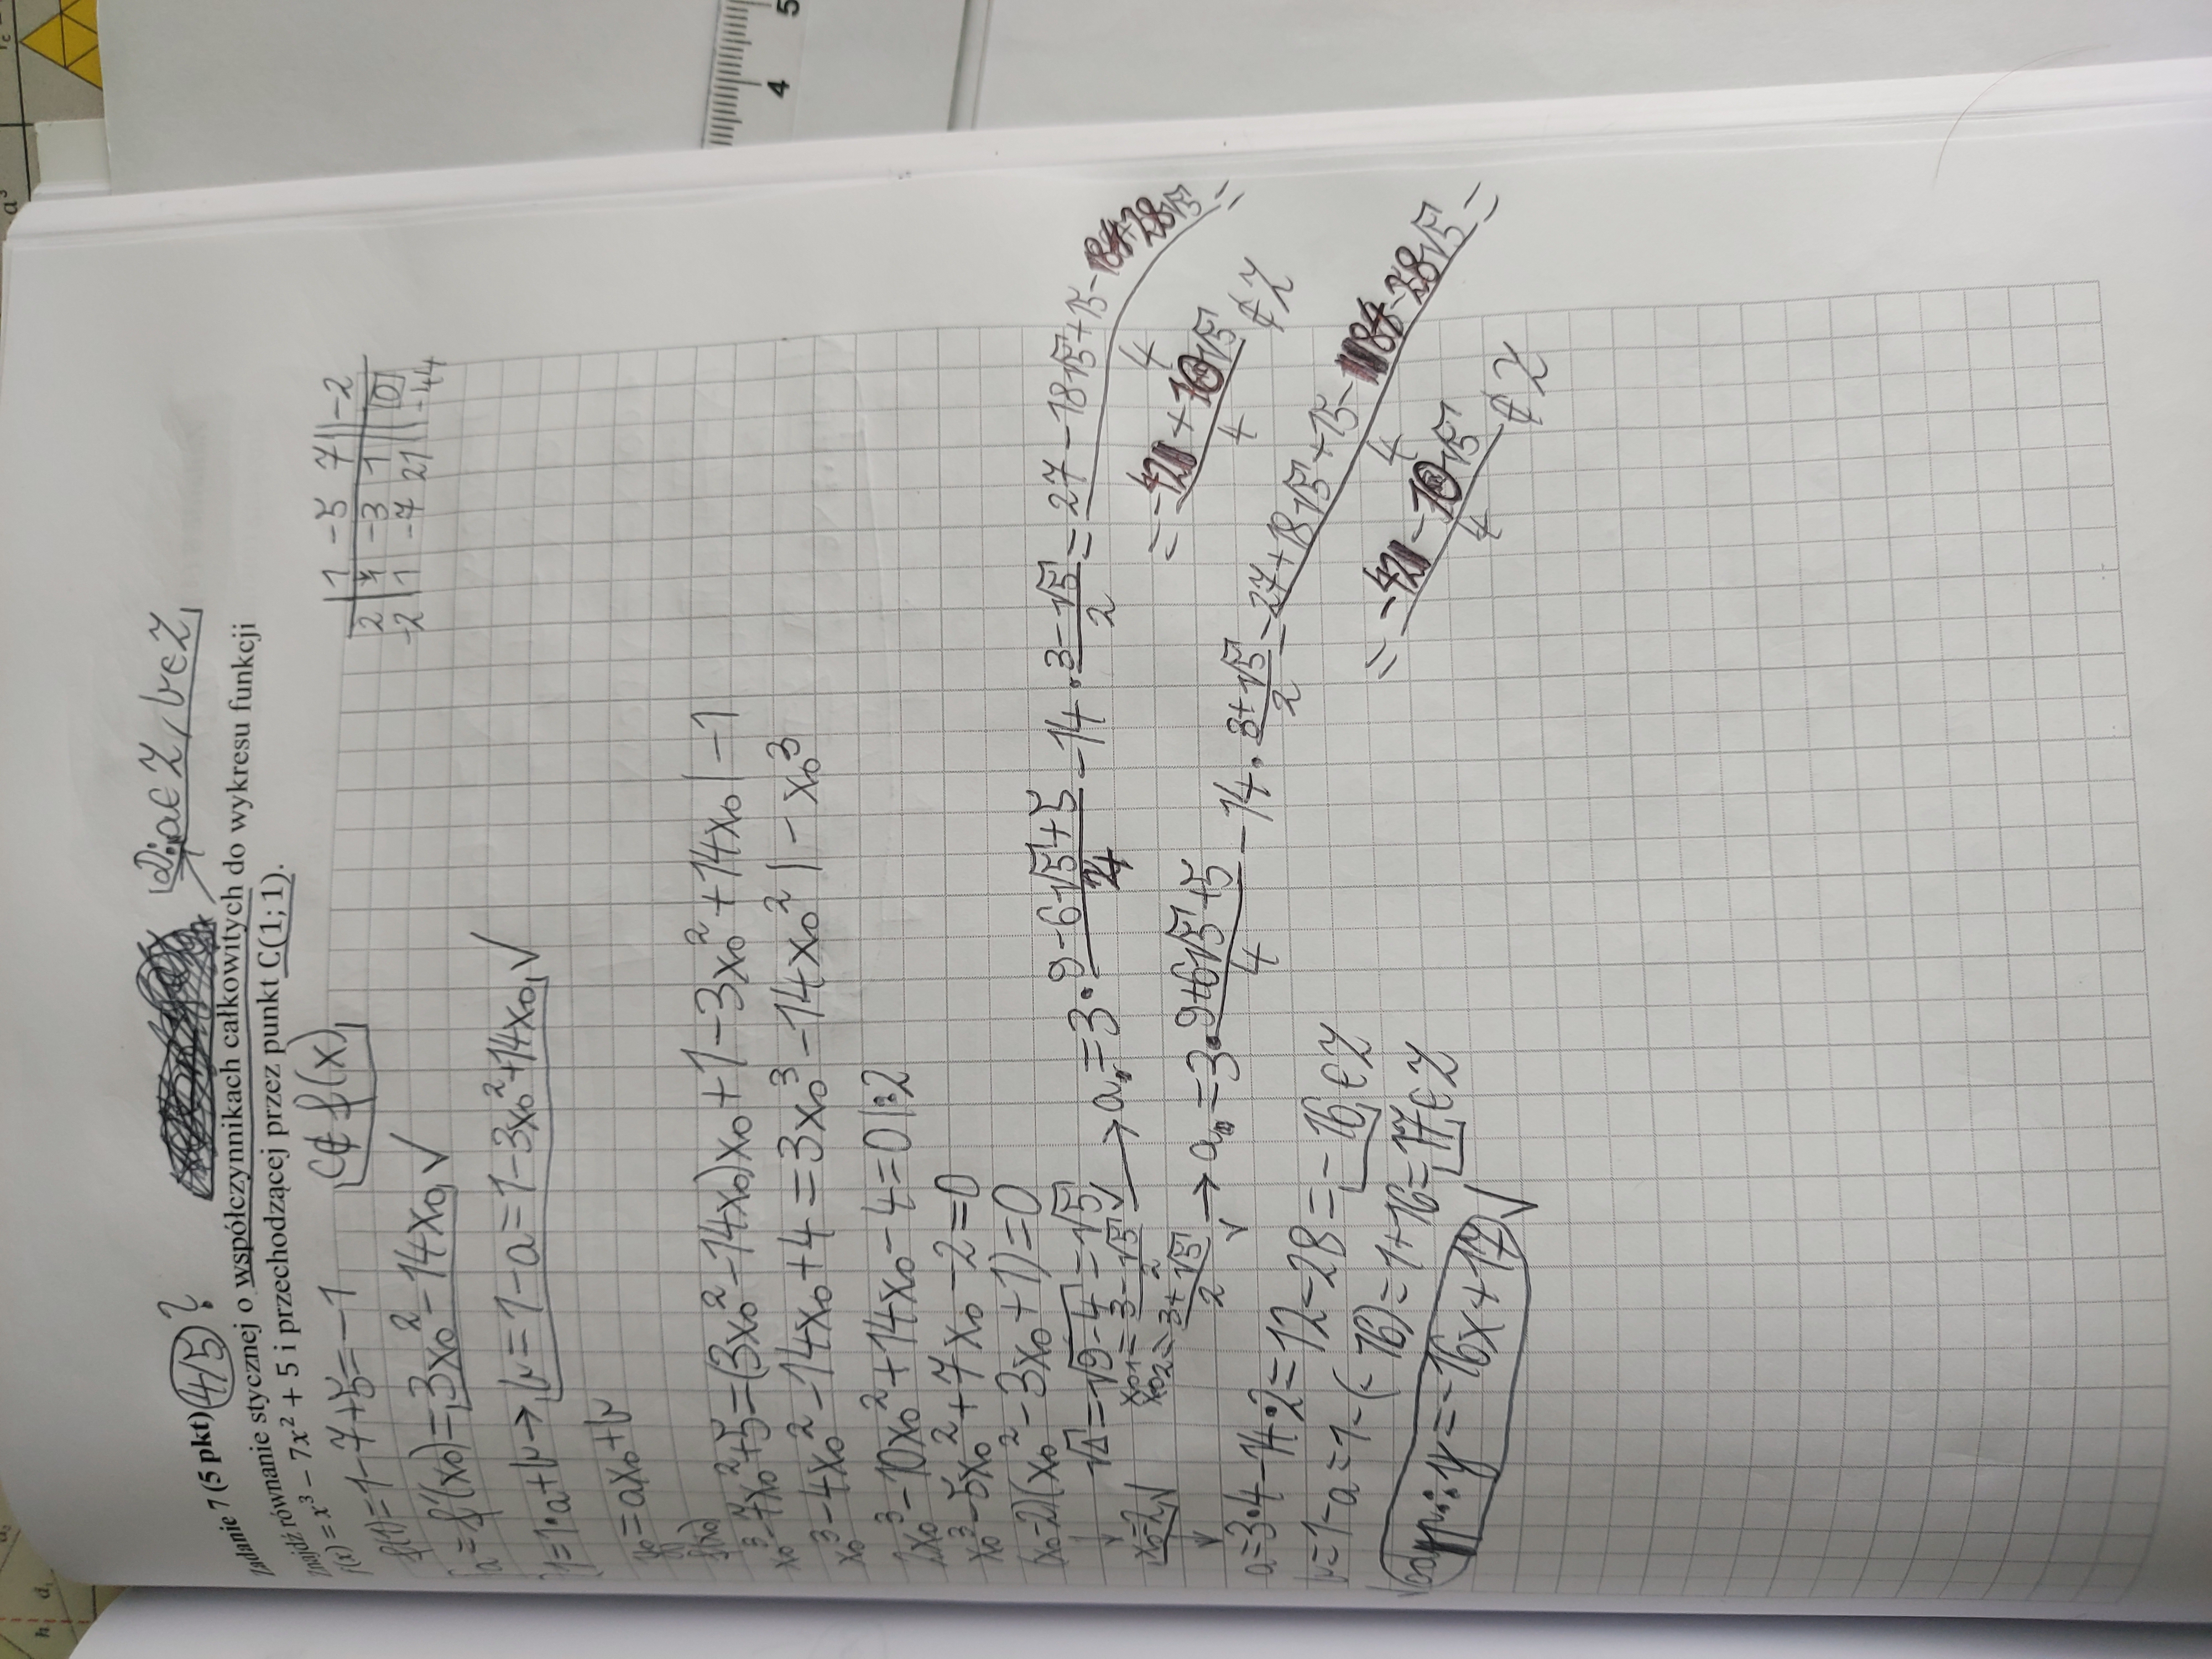 Zadanie 7 (5 pkt) 4/5?
Odp: a∈Z, b∈Z
Znajdź równanie stycznej o współczynnikach całkowitych do wykresu funkcji
f(x) = x³ − 7x² + 5 i przechodzącej przez punkt C(1; 1).
f(1)=1-7+5=-1
C∉f(x)
1 -5 7 -2
2 1 -3 1 0
-2 1 -7 21 -44
a=f'(x₀)=3x₀²-14x₀ √
1=1·a+b→b=1-a=1-3x₀²+14x₀ √
y₀=ax₀+b
f(x₀)
x₀³-7x₀²+5=(3x₀²-14x₀)x₀+1-3x₀²+14x₀ |-1
x₀³-4x₀²-14x₀+4=3x₀³-14x₀² | -x₀³
2x₀³-10x₀²+14x₀-4=0 |:2
x₀³-5x₀²+7x₀-2=0
(x₀-2)(x₀²-3x₀+1)=0
√Δ=√9-4=√5
x₀=2 √
x₀₁=3-√5/2 √ → a=3·9-6√5+5/4-14·3-√5/2=27-18√5+15-84+28√5/4=
=-42+10√5/4∉Z
x₀₂=3+√5/2 → a=3·9+6√5+5/4-14·3+√5/2=27+18√5+15-84-28√5/4=
=-42-10√5/4∉Z
a=3·4-14·2=12-28=-16∈Z
b=1-a=1-(-16)=1+16=17∈Z
Odp.: y=-16x+17 √
4 5